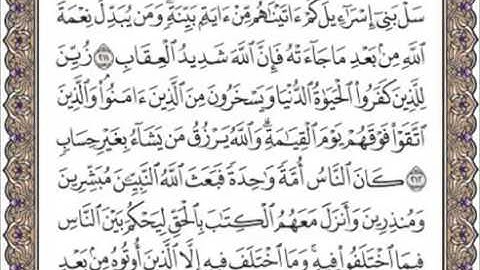 سَلْ بَنِىٓ إِسْرَٰٓءِيلَ كَمْ ءَاتَيْنَٰهُم مِّنْ ءَايَةٍۭ بَيِّنَةٍۗ وَمَن يُبَدِّلْ نِعْمَةَ
ٱللَّهِ مِنۢ بَعْدِ مَا جَآءَتْهُ فَإِنَّ ٱللَّهَ شَدِيدُ ٱلْعِقَابِ ٢١١ زُيِّنَ
لِلَّذِينَ كَفَرُوا۟ ٱلْحَيَوٰةُ ٱلدُّنْيَا وَيَسْخَرُونَ مِنَ ٱلَّذِينَ ءَامَنُوا۟ۘ وَٱلَّذِينَ
ٱتَّقَوْا۟ فَوْقَهُمْ يَوْمَ ٱلْقِيَٰمَةِۗ وَٱللَّهُ يَرْزُقُ مَن يَشَآءُ بِغَيْرِ حِسَابٍ
٢١٢ كَانَ ٱلنَّاسُ أُمَّةً وَٰحِدَةً فَبَعَثَ ٱللَّهُ ٱلنَّبِيِّـۧنَ مُبَشِّرِينَ
وَمُنذِرِينَ وَأَنزَلَ مَعَهُمُ ٱلْكِتَٰبَ بِٱلْحَقِّ لِيَحْكُمَ بَيْنَ ٱلنَّاسِ
فِيمَا ٱخْتَلَفُوا۟ فِيهِۚ وَمَا ٱخْتَلَفَ فِيهِ إِلَّا ٱلَّذِينَ أُوتُوهُ مِنۢ بَعْدِ